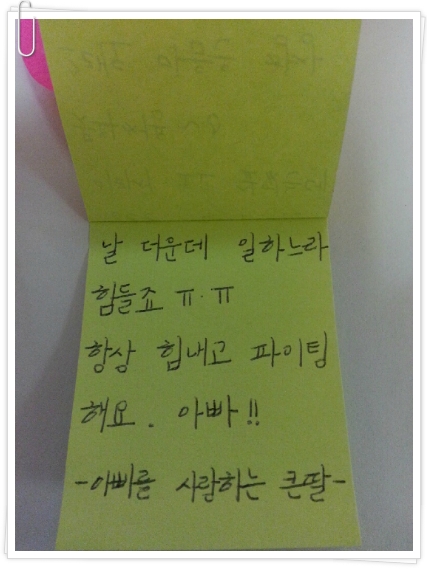 날 더운데 일하느라
힘들죠 ㅠ.ㅠ
항상 힘내고 파이팅
해요. 아빠!!
-아빠를 사랑하는 큰딸-